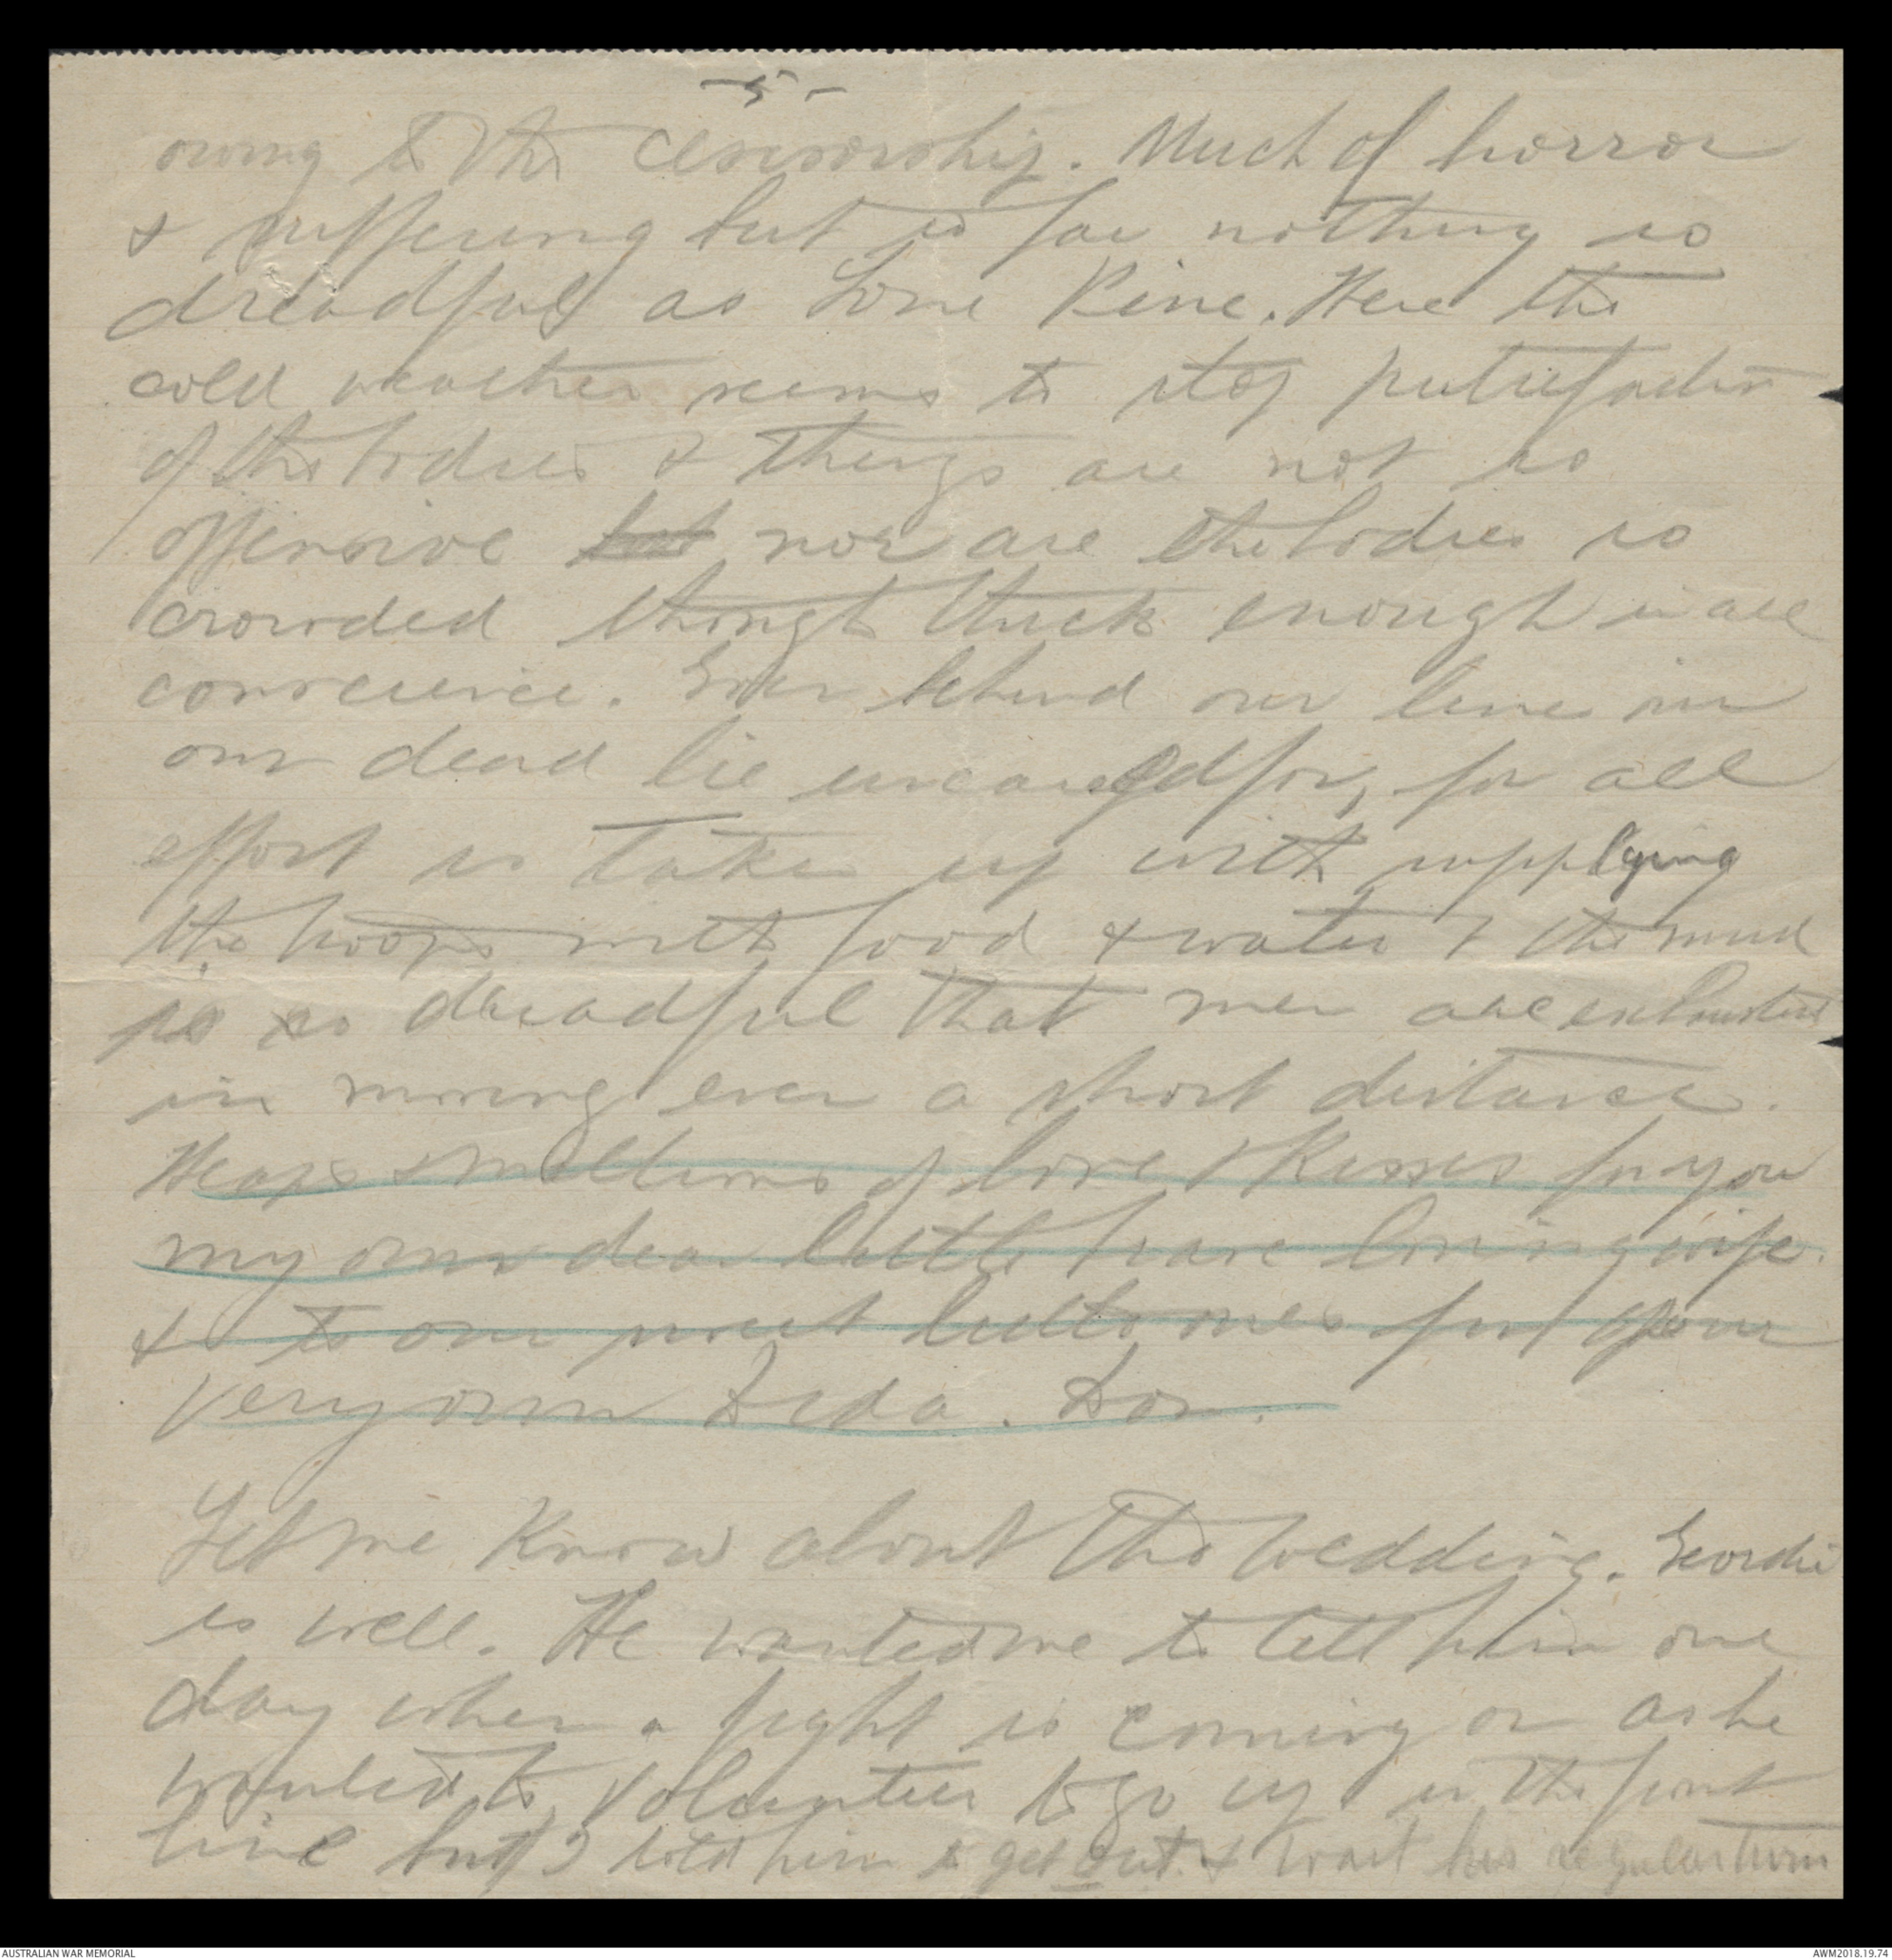 -5-
owing to the censorship. Much of horror
& suffering but so far nothing so
dreadful as Lone Pine. Here the
cold weather seems to stop putrefaction
of the bodies & things are not so
offensive but nor are the bodies so
crowded though thick enough in all
conscience. Even behind our line
our dead lie uncared for, for all
effort is taken up with supplying
the troops with food & water & the mud
is so dreadful that men are exhausted
in moving even a short distance.
Heaps & millions of love & kisses for you
my own dear little brave loving wife.
& to our sweet little ones from your
very own Dida. Don.
Let me know about the wedding. Geordie
is well. He wanted me to tell him one
day when a fight is coming on as he
wanted to volunteer to go up in the front
line but I told him to get out & wait his regular turn
AUSTRALIAN WAR MEMORIAL
AWM2018.19.74